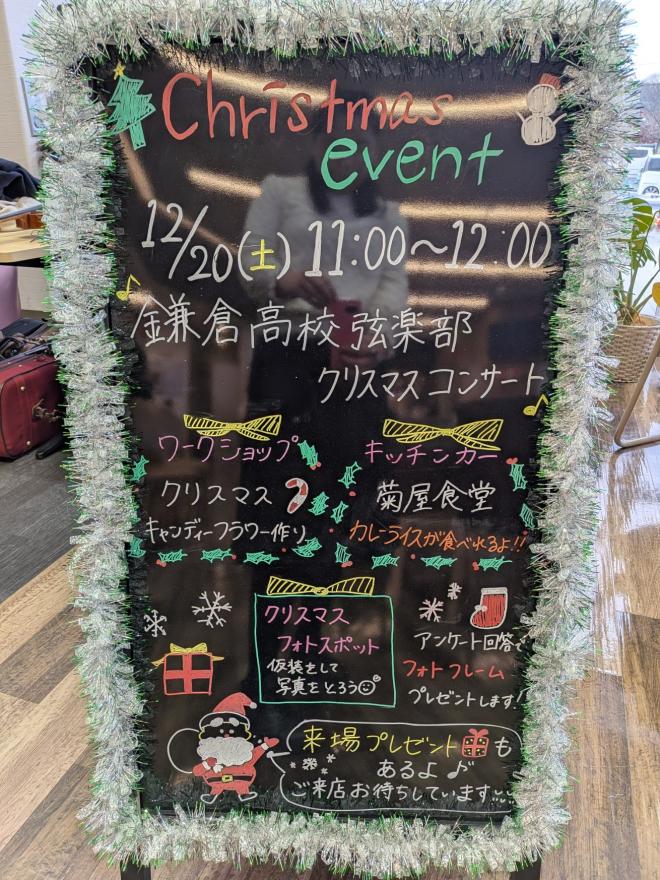 Christmas
event
12/20(土) 11:00～12:00
鎌倉高校 弦楽部
クリスマスコンサート
ワークショップ
クリスマス
キャンディーフラワー作り
キッチンカー
菊屋食堂
カレーライスが食べれるよ!!
クリスマス
フォトスポット
仮装をして
写真をとろう
アンケート回答で
フォトフレーム
プレゼントします!
来場プレゼントも
あるよ♪
ご来店お待ちしています